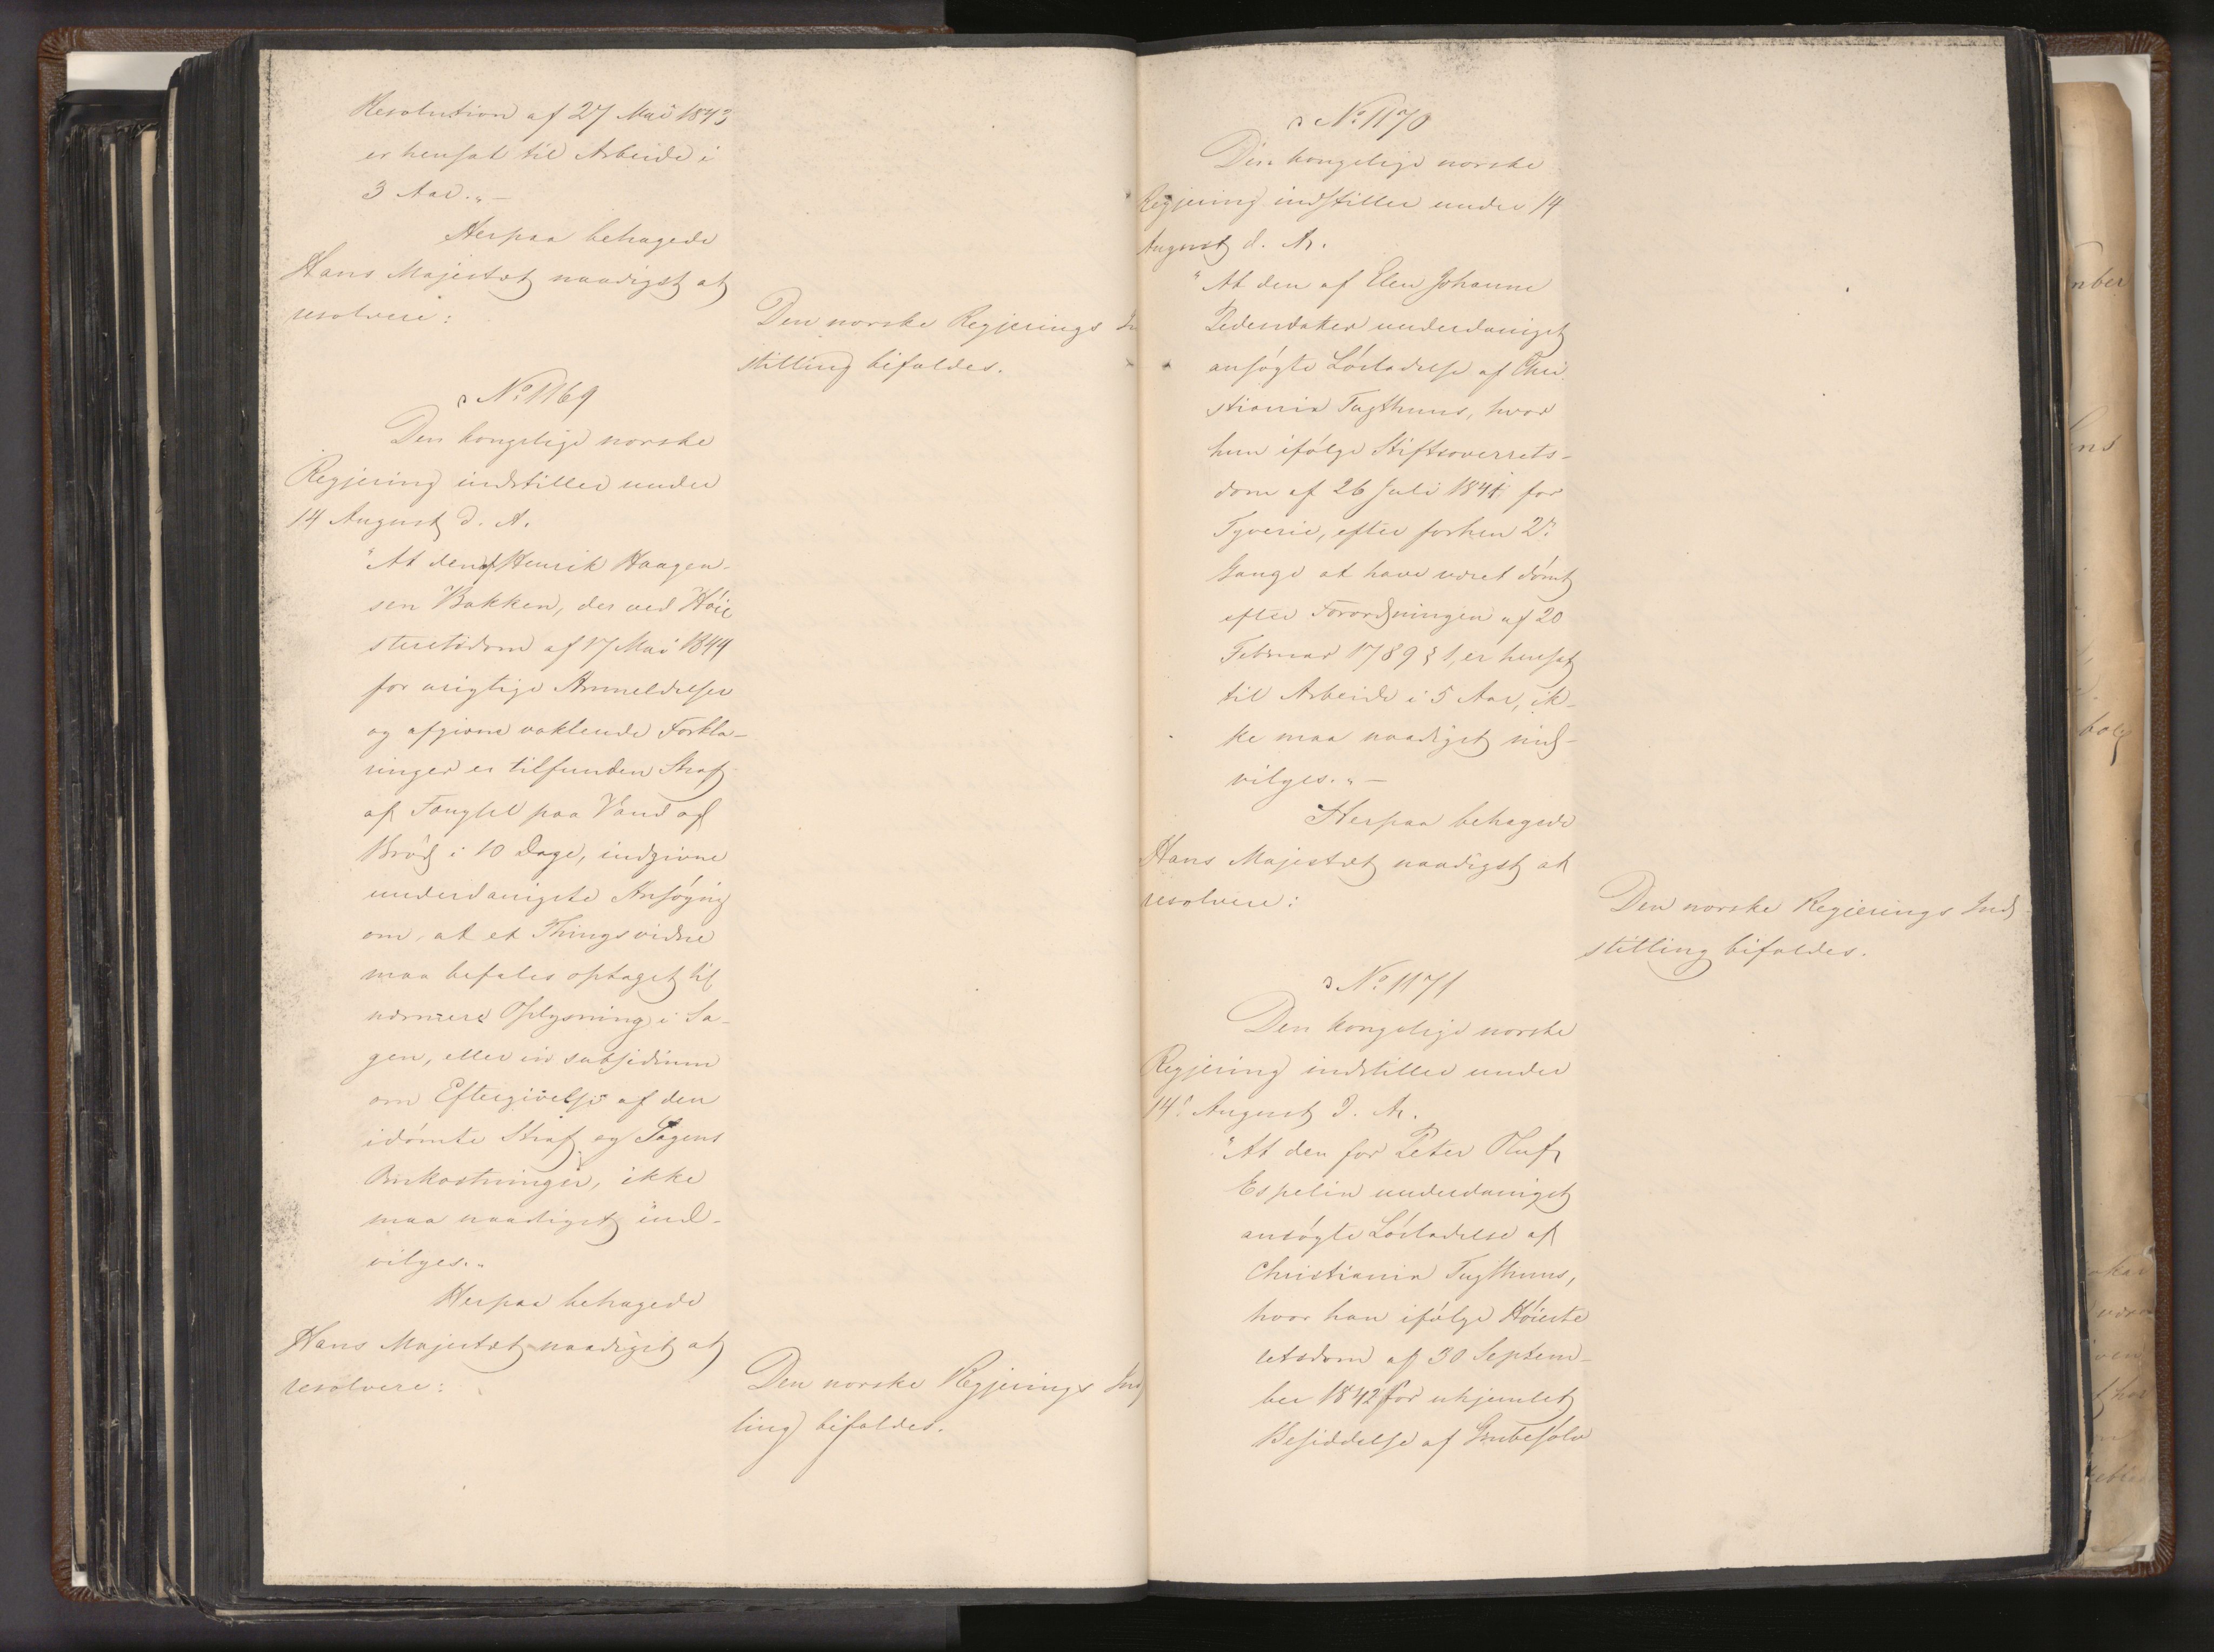 Resolution af 27 Mai 1843
er hensat til Arbeide i
3 Aar."—
Herpaa behagede
Hans Majestæt naadigst at
resolvere:
Den norske Regjerings In
stilling bifaldes.
No 1169
Den kongelige norske
Regjering indstiller under
14 August d. A.
"At den af Henrik Haagen-
sen Bakken, der ved Høie
steretsdom af 17 Mai 1844
for urigtige Anmeldelser
og afgivne vaklende Forkla-
ringer er tilfunden Straf
af Fængsel paa Vand og
Brød i 10 Dage, indgivne
underdanigste Ansøgning
om, at et Thingsvidne
maa befales optaget til
nærmere Oplysning i Sa-
gen, eller in subsidium
om Eftergivelse af den
idømte Straf og Sagens
Omkostninger, ikke
maa naadigst ind-
vilges."
Herpaa behagede
Hans Majestæt naadigst at
resolvere:
Den norske Regjerings Ind
ling bifaldes.
No 1170
Den kongelige norske
Regjering indstiller under 14
August d. Ar.
"At den af Elen Johanne
Pedersdatter underdanigst
ansøgte Løsladelse af Chri
stiania Tugthuus, hvor
hun ifølge Stiftsoverrets-
dom af 26 Juli 1841 for
Tyverie, efter forhen 2de
Gange at have været dømt
efter Forordningen af 20
Februar 1789 § 1, er hensat
til Arbeide i 5 Aar, ik-
ke maa naadigst ind-
vilges."—
Herpaa behagede
Hans Majestæt naadigst at
resolvere:
Den norske Regjerings Ind
stilling bifaldes.
No 1171
Den kongelige norske
Regjering indstiller under
14de August d. Ar.
"At den for Peter Oluf
Espelin underdanigst
ansøgte Løsladelse af
Christiania Tugthuus,
hvor han ifølge Høieste
retsdom af 30 Septem-
ber 1842 for uhjemlet
Besiddelse af Grubesølv